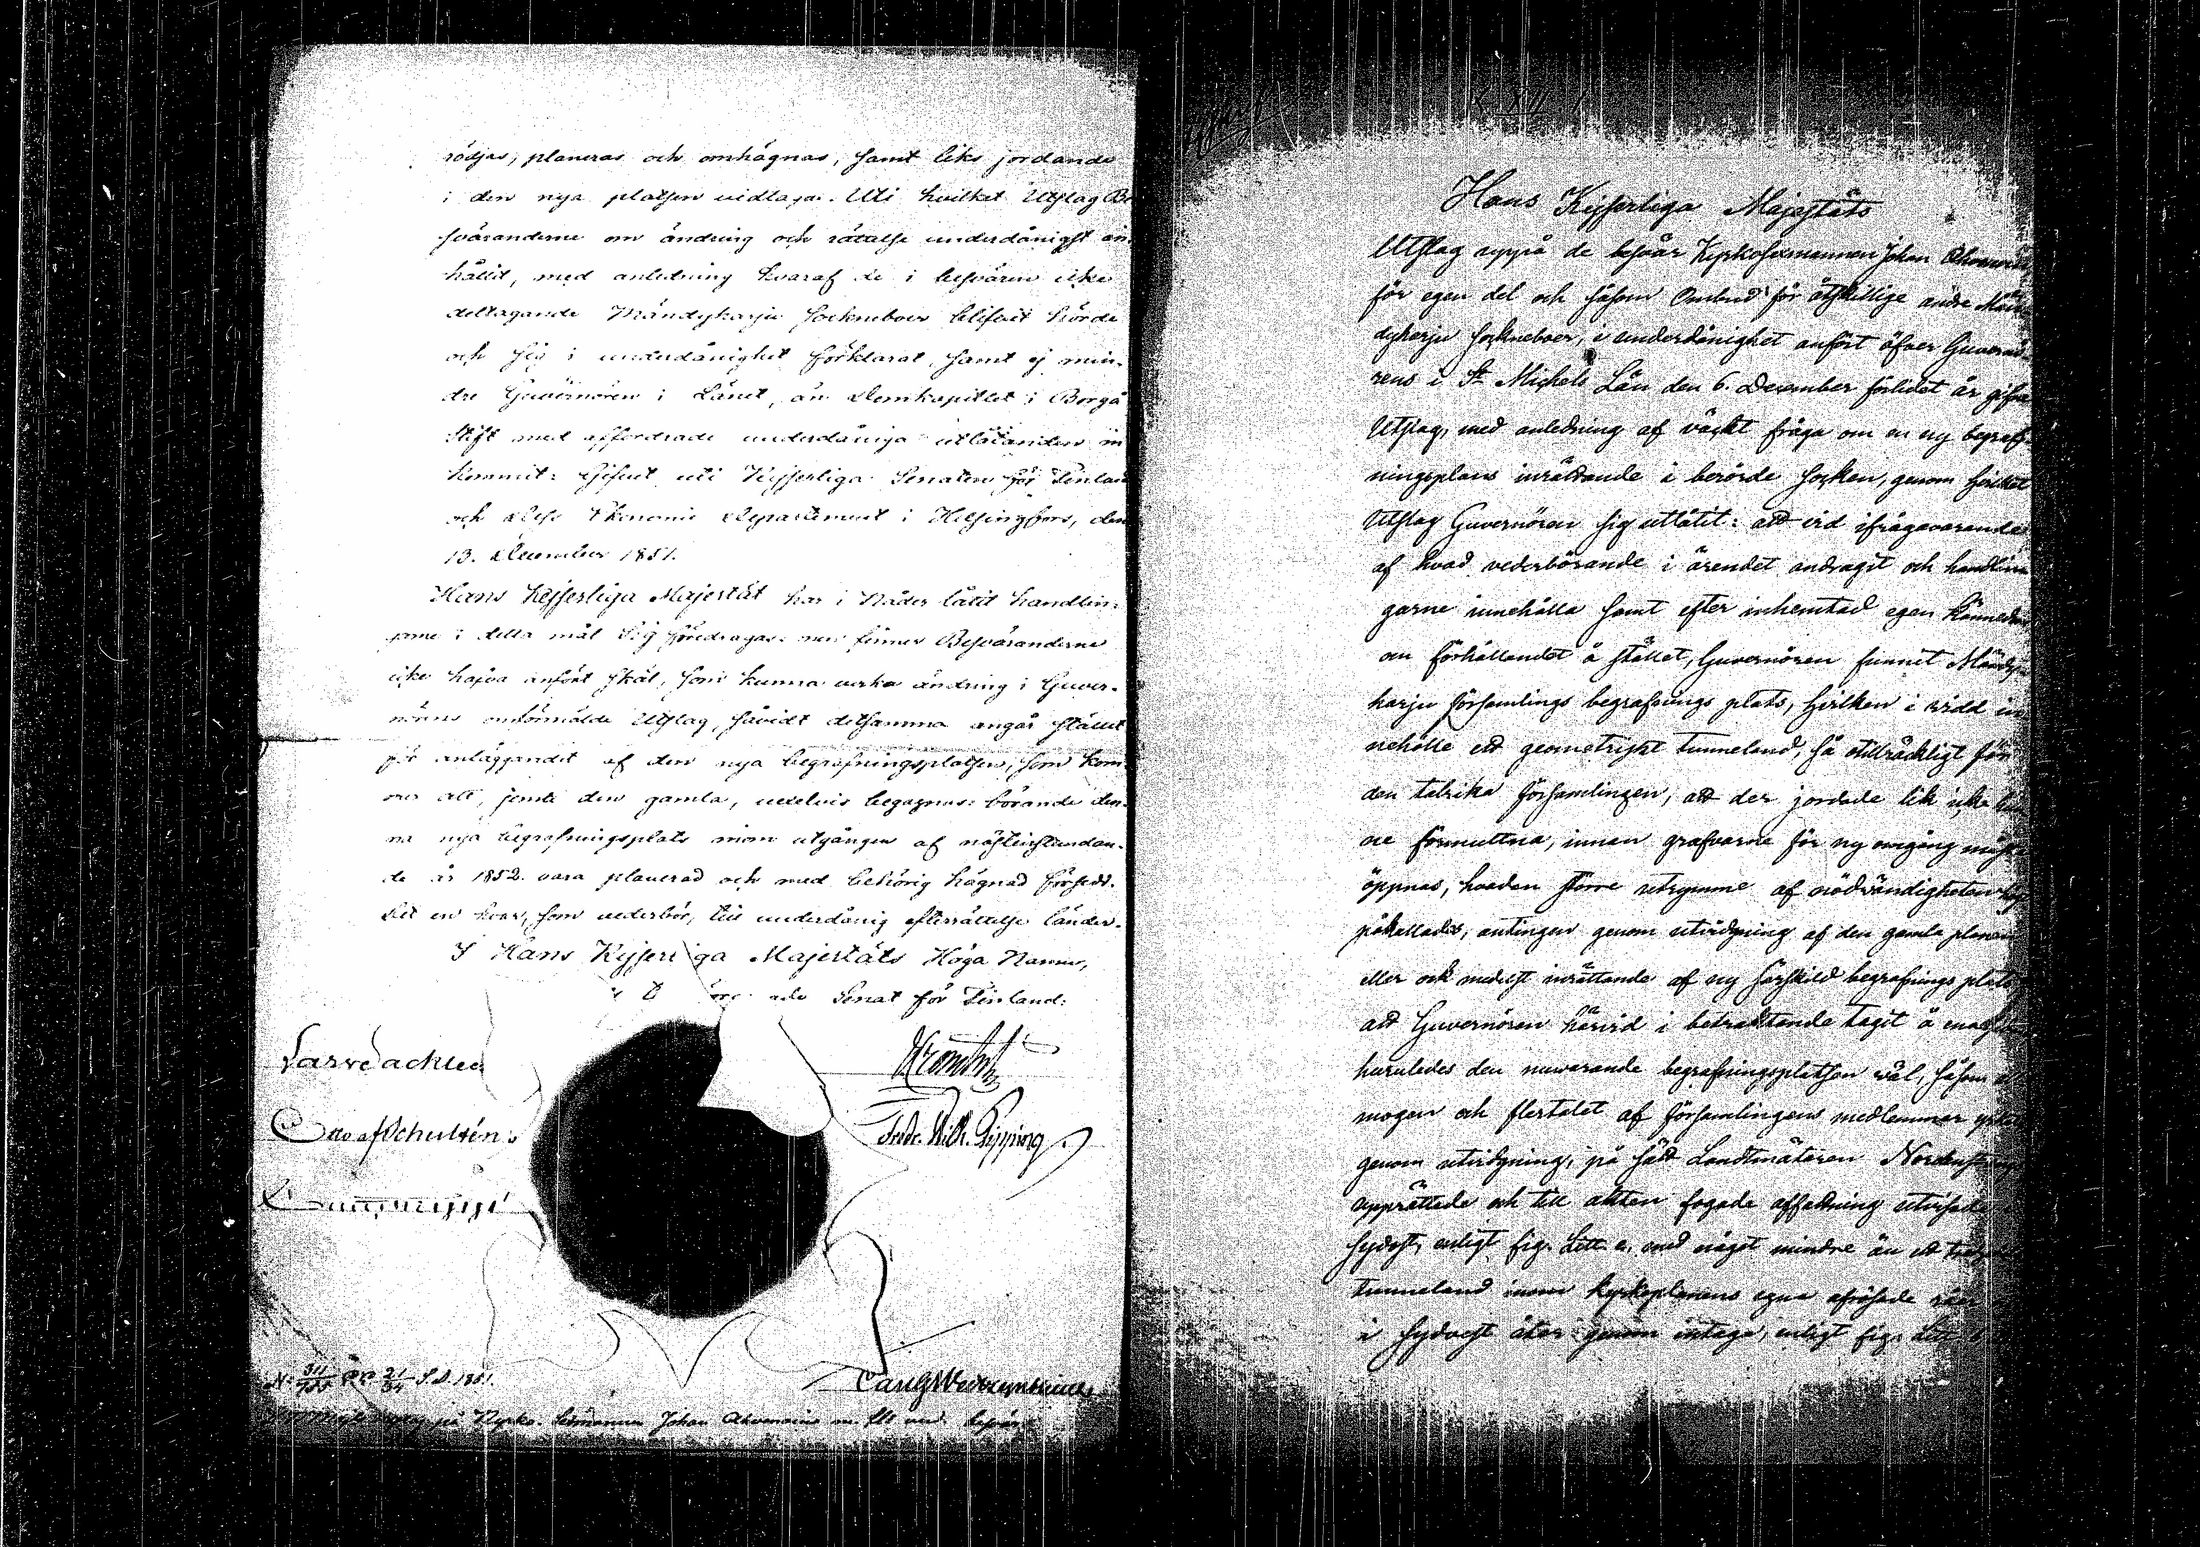 rödjas, planeras och omhägnas, samt liks jordande
i den nya platsen vidtaga. Uti hvilket Utslag Be
sväranderne om ändring och rättelse underdånigst an
hållit, med anledning hvaraf de i besvären icke
deltagande Mändyharju Sockneboer blifvit hörde
och sig i underdånighet förklarat, samt ej min-
dre Guvernören i Länet, än Domkapitlet i Borgå
Stift med affordrade underdåniga utlåtanden in
kommit: Gifvet uti Kejserliga Senaten för Finland
och dess Ekonomie Departement i Helsingfors, den
13. December 1851.
Hans Kejserliga Majestät har i Nåder låtit handlin-
garne i detta mål Sig föredragas: men finner Besväranderne
icke hafva anfört skäl, som kunna verka ändring i Guver-
nörens omförmälde Utslag, såvidt detsamma angår stället
för anläggandet af den nya begrafningsplatsen, som kom-
mer att, jemte den gamla, vexelvis begagnas: börande den-
na nya begrafningsplats inom utgången af nästinstundan-
de år 1852. vara planerad och med behörig hägnad försedd.
Det en hvar, som vederbör, till underdånig efterrättelse länder.
I Hans Kejserliga Majestäts Höga Namn,
Senat för Finland:
Otto af Schultén
Fredr. Wilh. Pipping
S.D. 1851.
på Kyrko-Sexmannen Johan Ahvenainen m. fl. besvär
Hans Kejserliga Majestäts
Utslag uppå de besvär Kyrkosexmannen Johan Ahvenainen
för egen del och såsom Ombud för åtskillige andre Män
dyharju Sockneboer, i underdånighet anfört öfver Guvernö
rens i St Michels Län den 6. December förlidet år gifna
Utslag, med anledning af väckt fråga om en ny begraf-
ningsplans inrättande i berörde Socken, genom hvilket
Utslag Guvernören sig utlåtit: att vid ifrågavarande
af hvad vederbörande i ärendet andragit och handlin
garne innehålla samt efter inhemtad egen kännedom
om förhållandet å stället, Guvernören funnit Mändy-
harju församlings begrafnings plats, hvilken i vidd in
nehölle ett geometriskt tunneland, så otillräckligt för
den talrika församlingen, att der jordade lik icke hun
ne förmultna, innan grafvarne för ny omgång måste
öppnas, hvadan större utrymme af nödvändigheten
påkallades, antingen genom utvidgning af den gamla planen
eller ock medelst inrättande af ny särskild begrafnings plats
att Guvernören härvid i betraktande tagit å ena sidan
huruledes den nuvarande begrafningsplatsen väl, såsom al
mogen och flertalet af församlingens medlemmar yrkat
genom utvidgning, på sätt Landtmätaren
upprättade och till akten fogade affattning utvisade
sydost, enligt fig. Litt. a, med något mindre än ett
tunneland inom kyrkoplanens egna afrösade råer
i sydvest åter genom intaga, enligt fig. Litt.